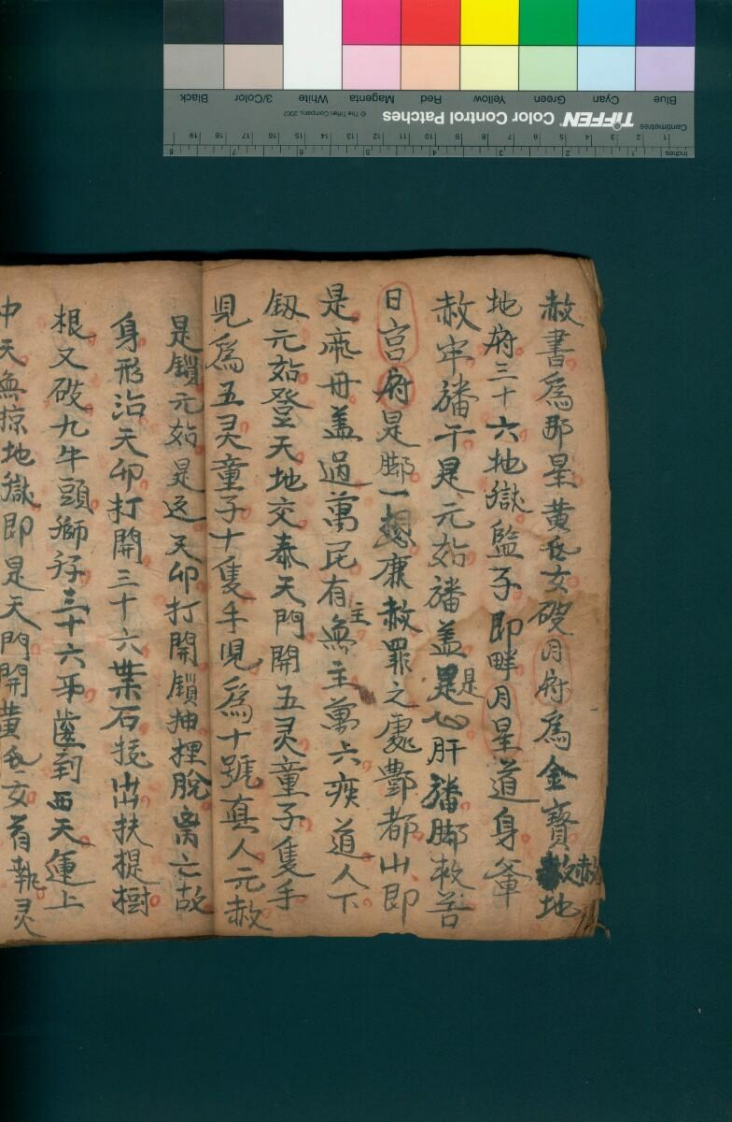 赦書為那是黄氏女破月府為金寶赦地
地府三十六地獄監子即畔月星道身輋
赦牢旛干是元始旛盖是心肝旛脚救苦
日宫府是脚一想康赦罪之處酆都山即
是𠇁毋盖過萬民有無主萬六疾道人下
釼元始登天地交泰天門開五灵童子隻手
見為五灵童子十隻手見為十號真人元赦
是鎖元始是迗天卯打開鎖抽捚脫离亡故
身形治天卯打開三十六業石技出扶提樹
根又破九牛頭獅孖三十六牙齒到西天運上
中天無掠地獄即是天門開黄氏女首執灵
Blue
Cyan
Green
Yellow
Red
Magenta
White
3/Color
Black
TIFFEN Color Control Patches
© The Tiffen Company, 2007
Centimetres
1 2 3 4 5 6 7 8 9 10 11 12 13 14 15 16 17 18 19
Inches
1 2 3 4 5 6 7 8